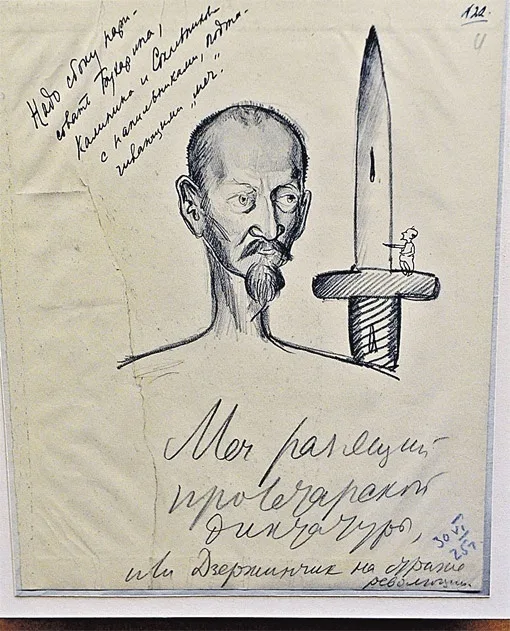 122.
Надо сбоку пари-
совать Бухарина,
Калинина и Сокольникова
с напильниками, подта-
чивающими „меч“.
Меч разящий
пролетарской
диктатуры,
или Дзержинчик на страже
революции
30 VI
25 г